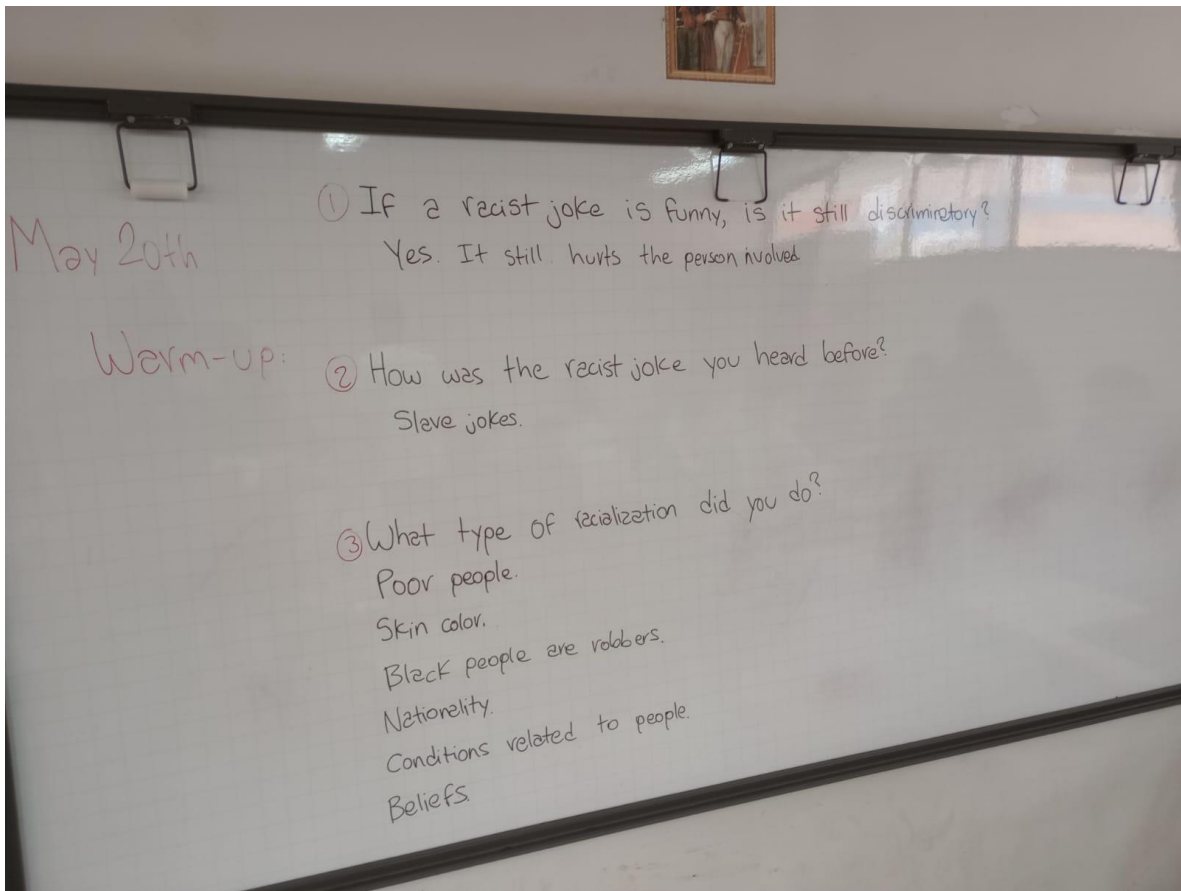 May 20th
① If a racist joke is funny, is it still discriminatory?
Yes. It still hurts the person nvolved
Warm-up:
② How was the racist joke you heard before?
Slave jokes.
③ What type of racialization did you do?
Poor people.
Skin color.
Black people are robbers.
Nationality.
Conditions related to people.
Beliefs.